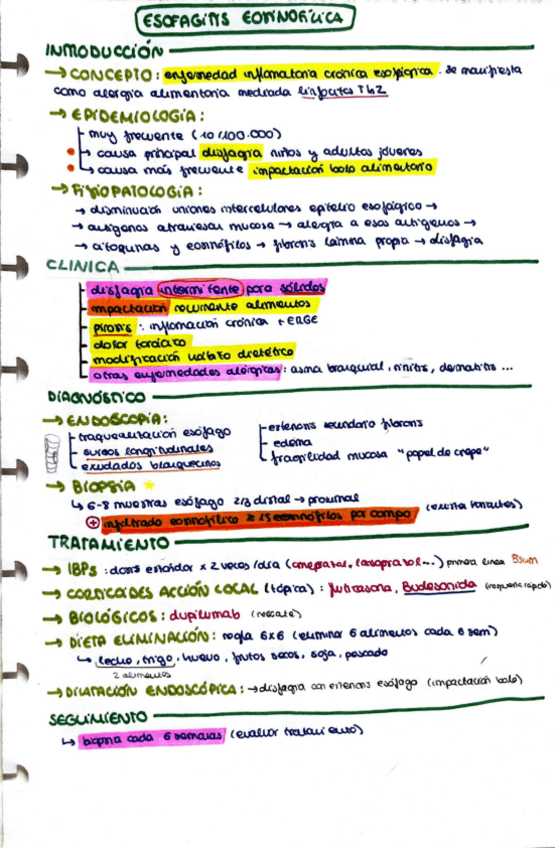 ESOFAGITIS EOSINOFÍLICA
INTRODUCCIÓN
→ CONCEPTO: enfermedad inflamatoria crónica esofágica. Se manifiesta
como alergia alimentaria mediada linfocitos Th2
→ EPIDEMIOLOGÍA:
muy frecuente (10/100.000)
causa principal disfagia niños y adultos jóvenes
causa más frecuente impactación bolo alimentario
→ FISIOPATOLOGÍA:
→ disminución uniones intercelulares epitelio esofágico →
→ antígenos atraviesan mucosa → alergia a esos antígenos →
→ citoquinas y eosinófilos → fibrosis lámina propia → disfagia
CLINICA
disfagia intermitente para sólidos
impactación recurrente alimentos
pirosis: inflamación crónica + ERGE
dolor torácico
modificación hábito dietético
otras enfermedades alérgicas: asma bronquial, rinitis, dermatitis...
DIAGNÓSTICO
→ ENDOSCOPIA:
traquealización esófago
surcos longitudinales
exudados blanquecinos
estenosis secundaria fibrosis
edema
fragilidad mucosa "papel de crepe"
→ BIOPSIA
↳ 6-8 muestras esófago 2/3 distal → proximal
+ infiltrado eosinofílico ≥ 15 eosinófilos por campo
TRATAMIENTO
→ IBPs: dosis estándar x 2 veces/día (omeprazol, lansoprazol...) primera línea 8sem
→ CORTICOIDES ACCIÓN LOCAL (tópica): fluticasona, Budesonida (respuesta rápida)
→ BIOLÓGICOS: dupilumab (rescate)
→ DIETA ELIMINACIÓN: regla 6x6 (eliminar 6 alimentos cada 6 sem)
↳ leche, trigo, huevo, frutos secos, soja, pescado
2 alimentos
→ DILATACIÓN ENDOSCÓPICA: → disfagia con estenosis esófago (impactación bolo)
SEGUIMIENTO
↳ biopsia cada 6 semanas (evaluar tratamiento)